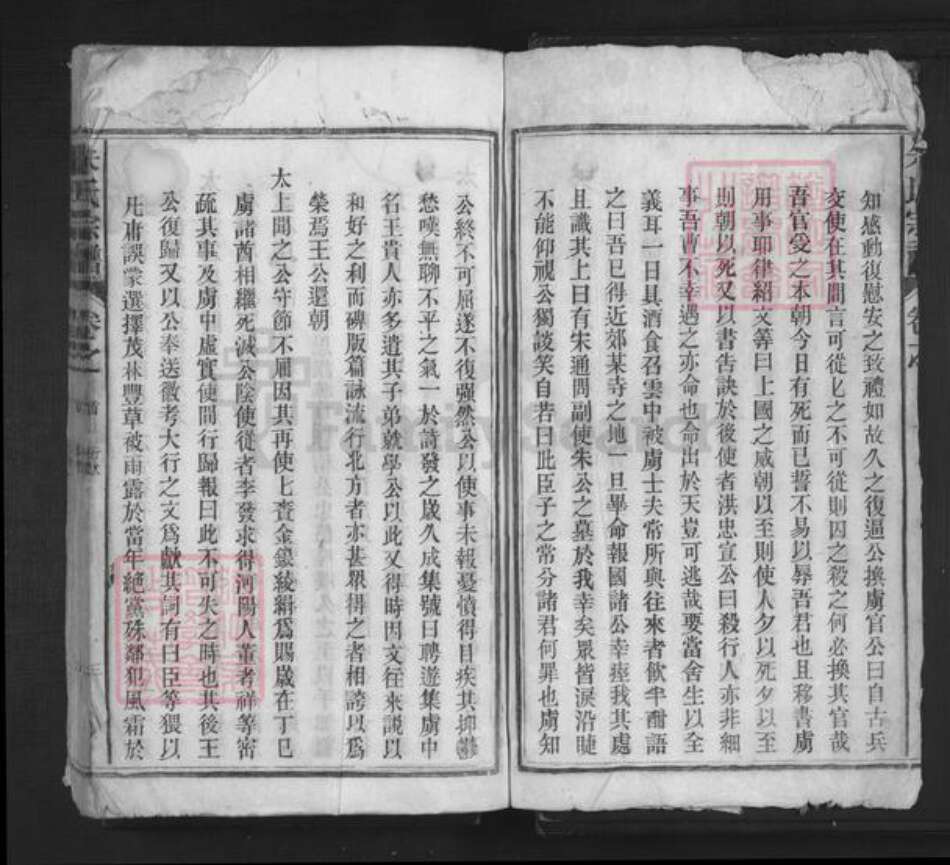 知感動復慰安之致禮如故久之復逼公換虜官公曰自古兵
交使在其間言可從從之不可從則囚之殺之何必換其官哉
吾官受之本朝今日有死而已誓不易以辱吾君也且移書虜
用事耶律紹文等曰上國之威朝以至則使人夕以死夕以至
則朝以死又以書告訣於後使者洪忠宣公曰殺行人亦非細
事吾曹不幸遇之亦命也命出於天豈可逃哉要當舍生以全
義耳一日具酒食召雲中被虜士夫常所與往來者飲半酣語
之曰吾已得近郊某寺之地一旦畢命報國諸公幸瘞我其處
且識其上曰有宋通問副使朱公之墓於我幸矣眾皆淚沿睫
不能仰視公獨談笑自若曰此臣子之常分諸君何罪也虜知
公終不可屈遂不復强然公以使事未報憂憤得目疾其抑鬱
愁嘆無聊不平之氣一於詩發之歲久成集號曰聘遊集虜中
名王貴人亦多遣其子弟就學公以此又得時因文往來説以
和好之利而碑版篇詠流行北方者亦甚眾得之者相誇以爲
榮焉王公還朝
太上聞之公守節不屈因其再使上賫金銀綾絹爲賜歲在丁巳
虜諸酋相繼死滅公陰使從者李發求得河陽人董者祥等密
疏其事及虜中虛實使間行歸報曰此不可失之時也其後王
公復歸又以公奉送徽考大行之文爲獻其詞有曰臣等猥以
凡庸誤蒙選擇茂林豐草被雨露於當年絶黨殊鄰犯風霜於
朱氏宗譜
卷之